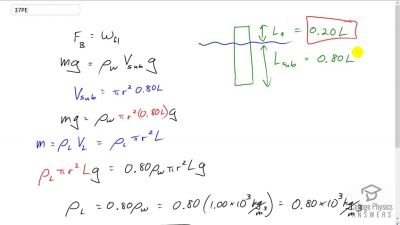 37PE
F_B = w_fl
mg = ρ_w V_sub g
V_sub = πr² 0.80L
mg = ρ_w πr²(0.80L)g
m = ρ_L V_L = ρ_L πr²L
ρ_L πr²Lg = 0.80ρ_w πr²Lg
ρ_L = 0.80ρ_w = 0.80(1.00×10³ kg/m³) = 0.80×10³ kg/m³
= 0.20L
L_sub = 0.80L
College Physics
ANSWERS